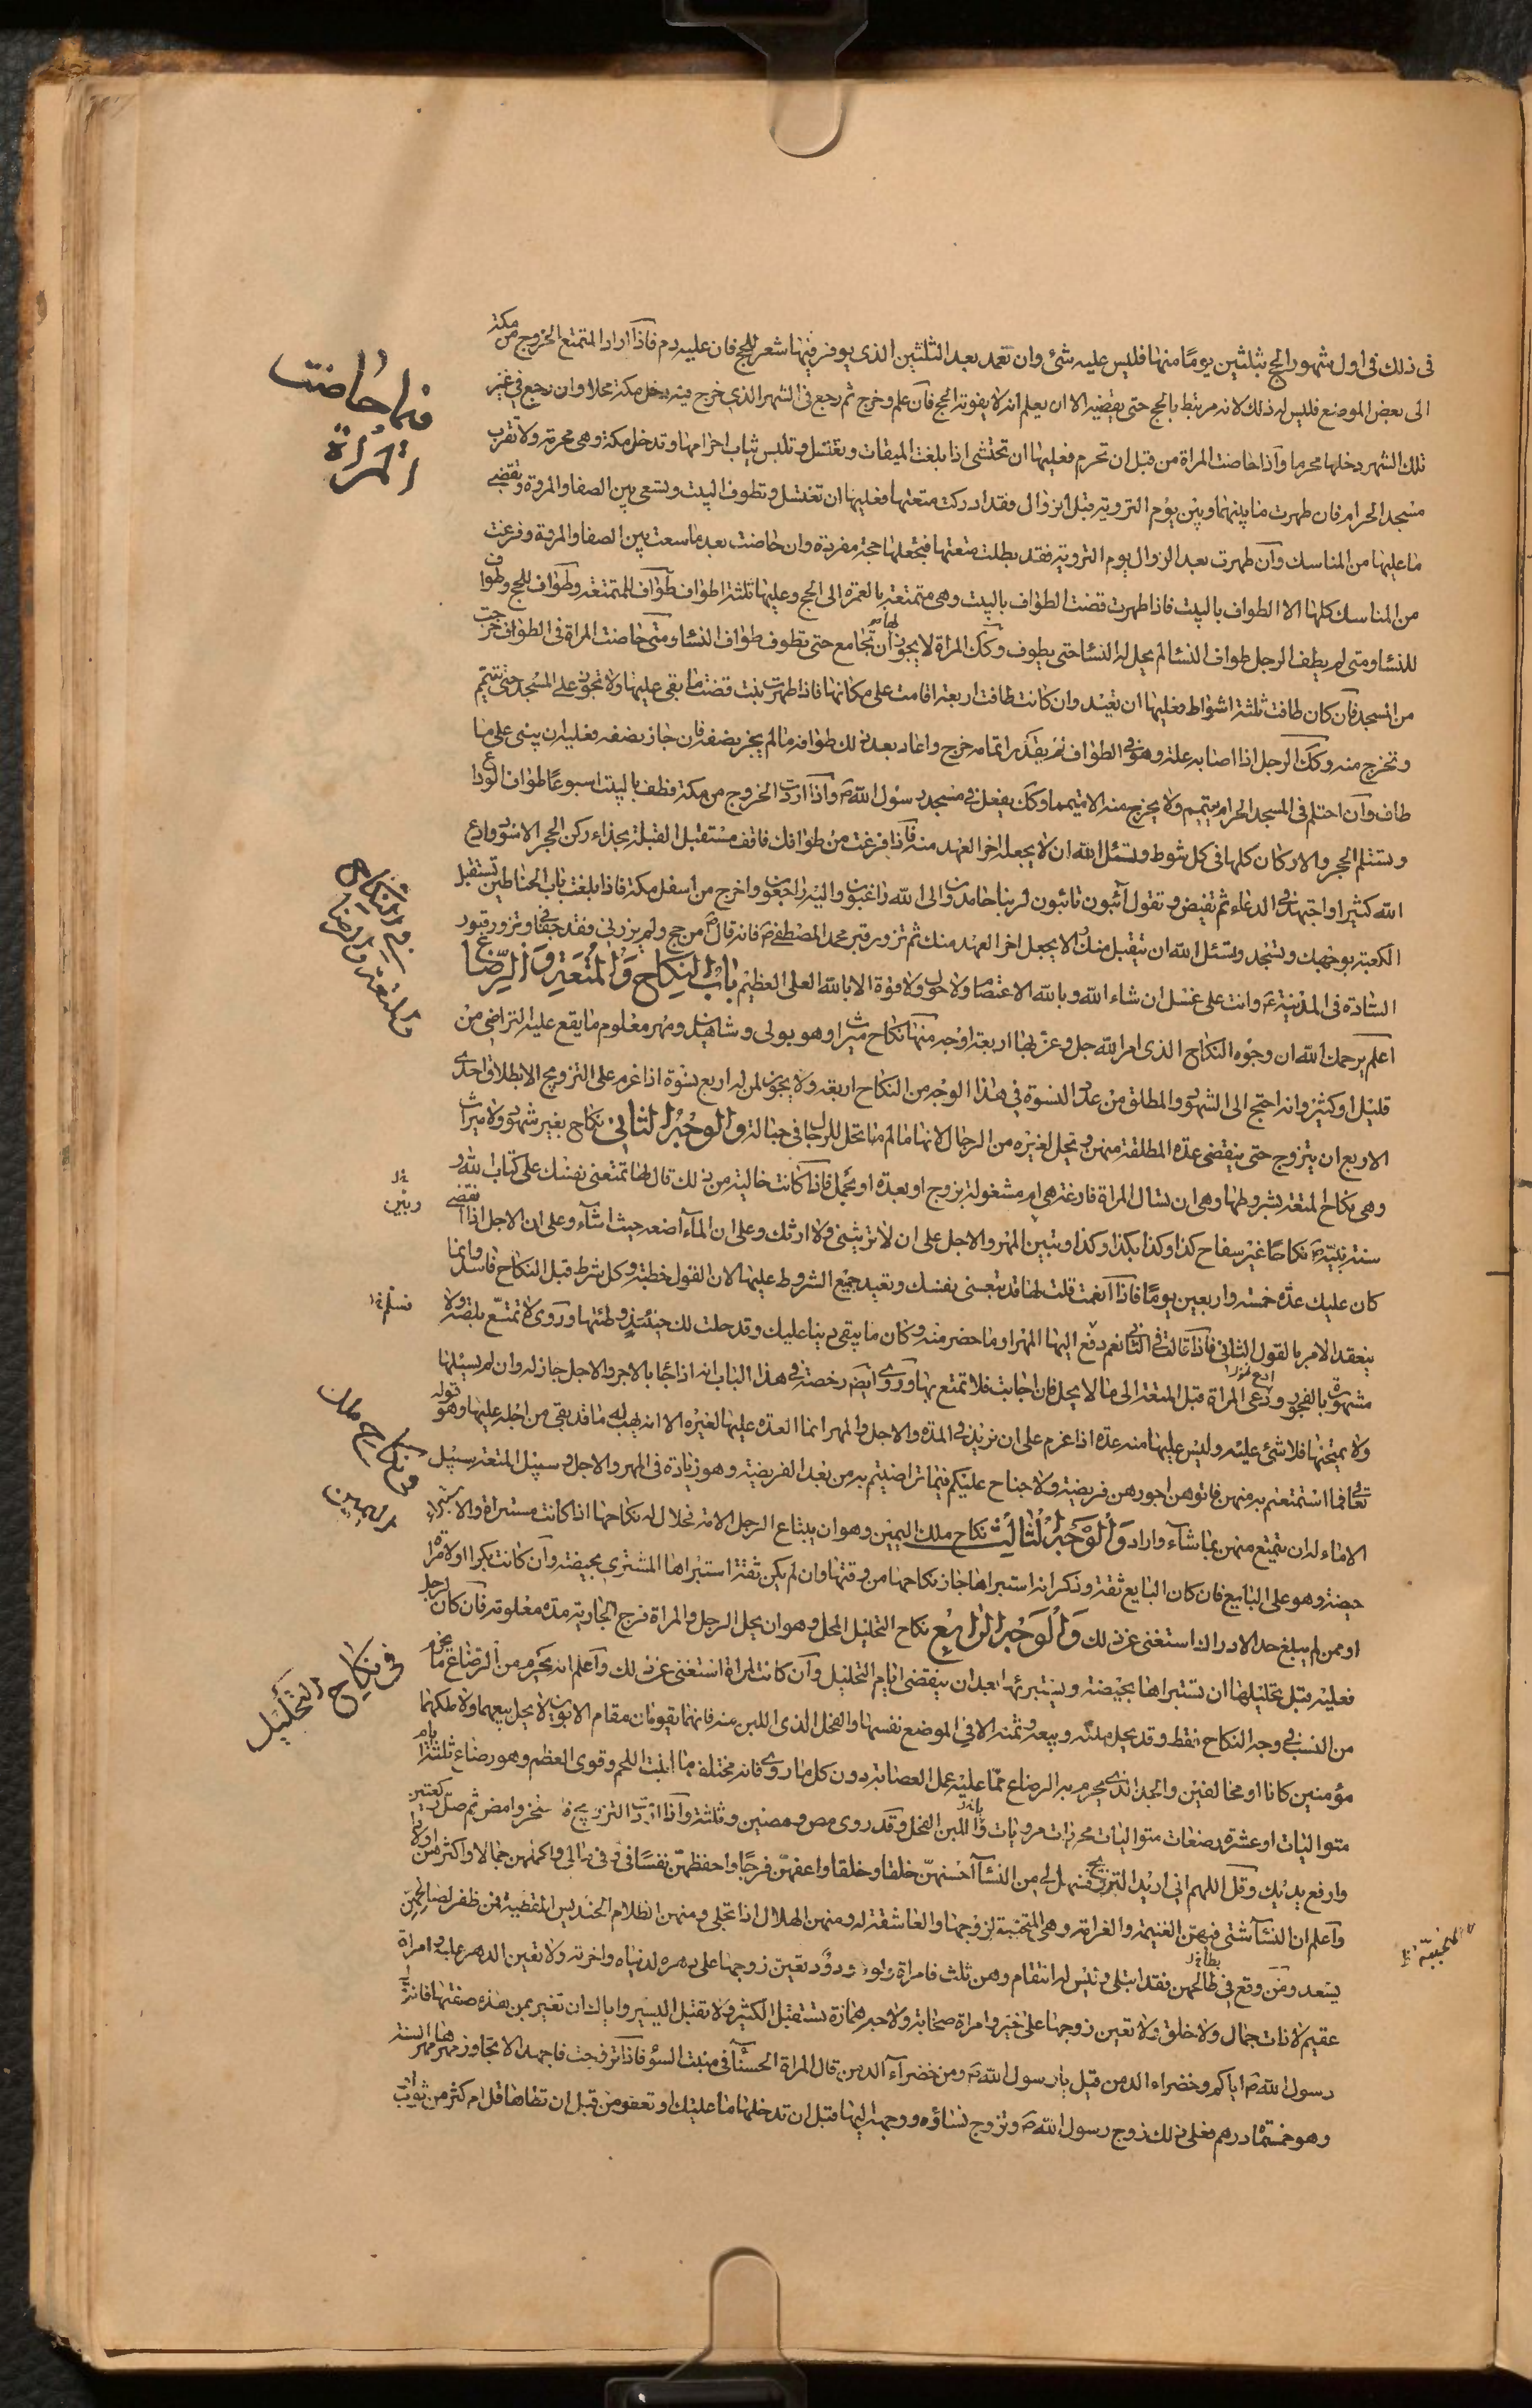 فى ذلك فى اول شهور الحج بثلثين يومًا منها فليس عليه شئ وان تعمد بعد الثلثين الذى يوفر فيها شعر للحج فان عليه دم فاذا اراد المتمتع الخروج من مكة
الى بعض المواضع فليس له ذلك لانه مرتبط بالحج حتى يقضيه الا ان يعلم انه لا يفوته الحج فان علم وخرج ثم رجع فى الشهر الذى خرج فيه دخل مكة محلا وان رجع فى غير
تلك الشهر دخلها محرما واذا حاضت المراة من قبل ان تحرم فعليها ان تحتشى اذا بلغت الميقات وتغتسل وتلبس ثياب احرامها وتدخل مكة وهى محرمة ولا تقرب
مسجد الحرام فان طهرت ما بينهما وبين يوم التروية قبل الزوال فقد ادركت متعتها فعليها ان تغتسل وتطوف البيت وتسعى بين الصفا والمروة وتقضى
ما عليها من المناسك وان طهرت بعد الزوال يوم التروية فقد بطلت متعتها فتجعلها حجة مفردة وان حاضت بعد ما سعت بين الصفا والمروة وفرغت
من المناسك كلها الا الطواف بالبيت فاذا طهرت قضت الطواف بالبيت وهى متمتعة بالعمرة الى الحج وعليها ثلثة اطواف طواف للمتمتعة وطواف للحج وطواف
للنسا ومتى لم يطف الرجل طواف النسا لم يحل له النسا حتى يطوف وكك المراة لا يجوز لها ان تجامع حتى تطوف طواف النسا ومتى حاضت المراة فى الطواف خرجت
من المسجد فان كان طافت ثلثة اشواط فعليها ان تعيد وان كانت طافت اربعة اقامت على مكانها فاذا طهرت بنت قضت ما بقى عليها ولا تجوز على المسجد حتى تتيمم
وتخرج منه وكك الرجل اذا اصابه علة وهو فى الطواف لم يقدر اتمامه خرج واعاد بعد ذلك طوافه ما لم يجز نصفه فان جاز نصفه فعليه ان يبنى على ما
طاف وان احتلم فى المسجد الحرام يتيمم ولا يخرج منه الا متيمما وكك يفعل فى مسجد رسول الله ص واذا اردت الخروج من مكة فطف بالبيت اسبوعًا طواف الوداع
وتستلم الحجر والاركان كلها فى كل شوط وتسئل الله ان لا يجعله اخر العهد منه فاذا فرغت من طوافك فاقف مستقبل القبلة بحذاء ركن الحجر الاسود وادع
الله كثيرا واجتهد فى الدعاء ثم تفيض وتقول آئبون تائبون لربنا حامدون الى الله راغبون واليه راجعون واخرج من اسفل مكة فاذا بلغت باب الحناطين تستقبل
الكعبة بوجهك وتسجد وتسئل الله ان يتقبل منك ولا يجعل اخر العهد منك ثم تزور قبر محمد المصطفى ص فانه قال ص من حج ولم يزرنى فقد جفانى وتزور قبور
السادة فى المدينة ع وانت على غسل ان شاء الله وبالله الاعتصام ولا حول ولا قوة الا بالله العلى العظيم باب النكاح والمتعة والرضاع
اعلم يرحمك الله ان وجوه النكاح الذى امر الله جل وعز بها اربعة اوجه منها نكاح ميراث وهو بولى وشاهدين ومهر معلوم ما يقع عليه التراضى من
قليل او كثير وانه احتج الى الشهود والمطلق من عدد النسوة فى هذا الوجه من النكاح اربعة ولا يجوز لمن له اربع نسوة اذا عزم على التزويج الا بطلاق احدى
الاربع ان يتزوج حتى ينقضى عدة المطلقة منهن وتحل لغيره من الرجال لانها ما لم ما تحل للرجال فى حباله والوجه الثانى نكاح بغير شهود ولا ميراث
وهى نكاح المتعة بشروطها وهى ان تسال المراة فارغة هى ام مشغولة بزوج او بعدة او بحمل فاذا كانت خالية من ذلك قال لها تمتعنى نفسك على كتاب الله و
سنة نبيه ص نكاحًا غير سفاح كذا وكذا بكذا وكذا وتبين المهر والاجل على ان لا ترثينى ولا ارثك وعلى ان الماء اضعه حيث اشاء وعلى ان الاجل اذا انقضى
كان عليك عدة خمسة واربعين يومًا فاذا انعمت قلت لها قد متعتنى نفسك وتعيد جميع الشروط عليها لان القول خطبة وكل شرط قبل النكاح فاسد وانما
ينعقد الامر بالقول الثانى فاذا قالت فى الثانى نعم دفع اليها المهر او ما حضر منه وكان ما يبقى دينا عليك وقد حلت لك حينئذ وطئها وروى لا تمتع بلصة ولا
مشهورة بالفجور وتدعى المراة قبل المتعة الى ما لا يحل فان اجابت فلا تمتع بها وروى ايضًا رخصة فى هذا الباب انه اذا جاء بالاجر والاجل جاز له وان لم يسئلها
ولا يمتحنها فلا شئ عليه وليس عليها منه عدة اذا عزم على ان يزيد فى المدة والاجل والمهر انما العدة عليها لغيره الا انه يهب له ما قد بقى من اجله عليها وهو قوله
تعالى فما استمتعتم به منهن فاتوهن اجورهن فريضة ولا جناح عليكم فيما تراضيتم به من بعد الفريضة وهو زيادة فى المهر والاجل وسبيل المتعة سبيل
الاماء له ان يتمتع منهن بما شاء واراد والوجه الثالث نكاح ملك اليمين وهو ان يبتاع الرجل الامة فحلال له نكاحها اذا كانت مستبراة والاستبراء
حيضة وهو على البايع فان كان البايع ثقة وذكر انه استبراها جاز نكاحها من وقتها وان لم يكن ثقة استبراها المشترى بحيضة وان كانت بكرا او لامراة
او ممن لم يبلغ حد الادراك استغنى عن ذلك والوجه الرابع نكاح التحليل المحل وهو ان يحل الرجل والمراة فرج الجارية مدة معلومة فان كان لرجل
فعليه قبل تحليلها ان تستبراها بحيضة ويستبرئها بعد ان ينقضى ايام التحليل وان كانت لمراة استغنى عن ذلك واعلم انه يحرم من الرضاع ما يحرم
من النسب فى وجه النكاح فقط وقد يحل ملكه وبيعه وثمنه الا فى الموضع نفسها والفحل الذى اللبن منه فانهما يقومان مقام الابوين لا يحل بيعهما ولا ملكهما
مؤمنين كانا او مخالفين والحد الذى يحرم به الرضاع مما عليه عمل العصابة دون كل ما روى فانه مختلف ما انبت اللحم وقوى العظم وهو رضاع ثلثة ايام
متواليات او عشرة رضعات متواليات محرزات مرويات باللبن الفحل وقد روى مص ومصتين وثلثة واذا اردت التزويج فاستخر وامض ثم صل ركعتين
وارفع يديك وقل اللهم انى اريد التزويج فسهل لى من النساء احسنهن خلقا وخلقا واعفهن فرجًا واحفظهن نفسًا فىّ وفى مالى واكملهن جمالا واكثرهن اولادا
واعلم ان النساء شتى فمنهن الغنيمة والغرامة وهى المتحببة لزوجها والعاشقة له ومنهن الهلال اذا تجلى ومنهن الظلام الحنديس المقطبة فمن ظفر بصالحتهن
يسعد ومن وقع فى طالحهن فقد ابتلى وليس له انتقام وهن ثلث فامراة ولود ودود تعين زوجها على دهره لدنياه واخرته ولا تعين الدهر عليه وامراة
عقيم لا ذات جمال ولا خلق ولا تعين زوجها على خير وامراة صخابة ولاجة همازة تستقبل الكثير ولا تقبل اليسير واياك ان تغير بمن هذه صفتها فانه قال
رسول الله ص اياكم وخضراء الدمن قيل يا رسول الله ص ومن خضراء الدمن قال المراة الحسناء فى منبت السوء فاذا تزوجت فاجهد الا تجاوز مهرها مهر السنة
وهو خمسمائة درهم فعلى ذلك زوج رسول الله ص وتزوج نساؤه ووجه اليها قبل ان تدخلها ما عليك او تعفو من قبل ان تطاها قل ام كثر من ثوب
فيما حاضت
المراة
باب النكاح
والمتعة والرضاع
وتبين
تسلم
فى نكاح ملك
اليمين
فى نكاح التحليل